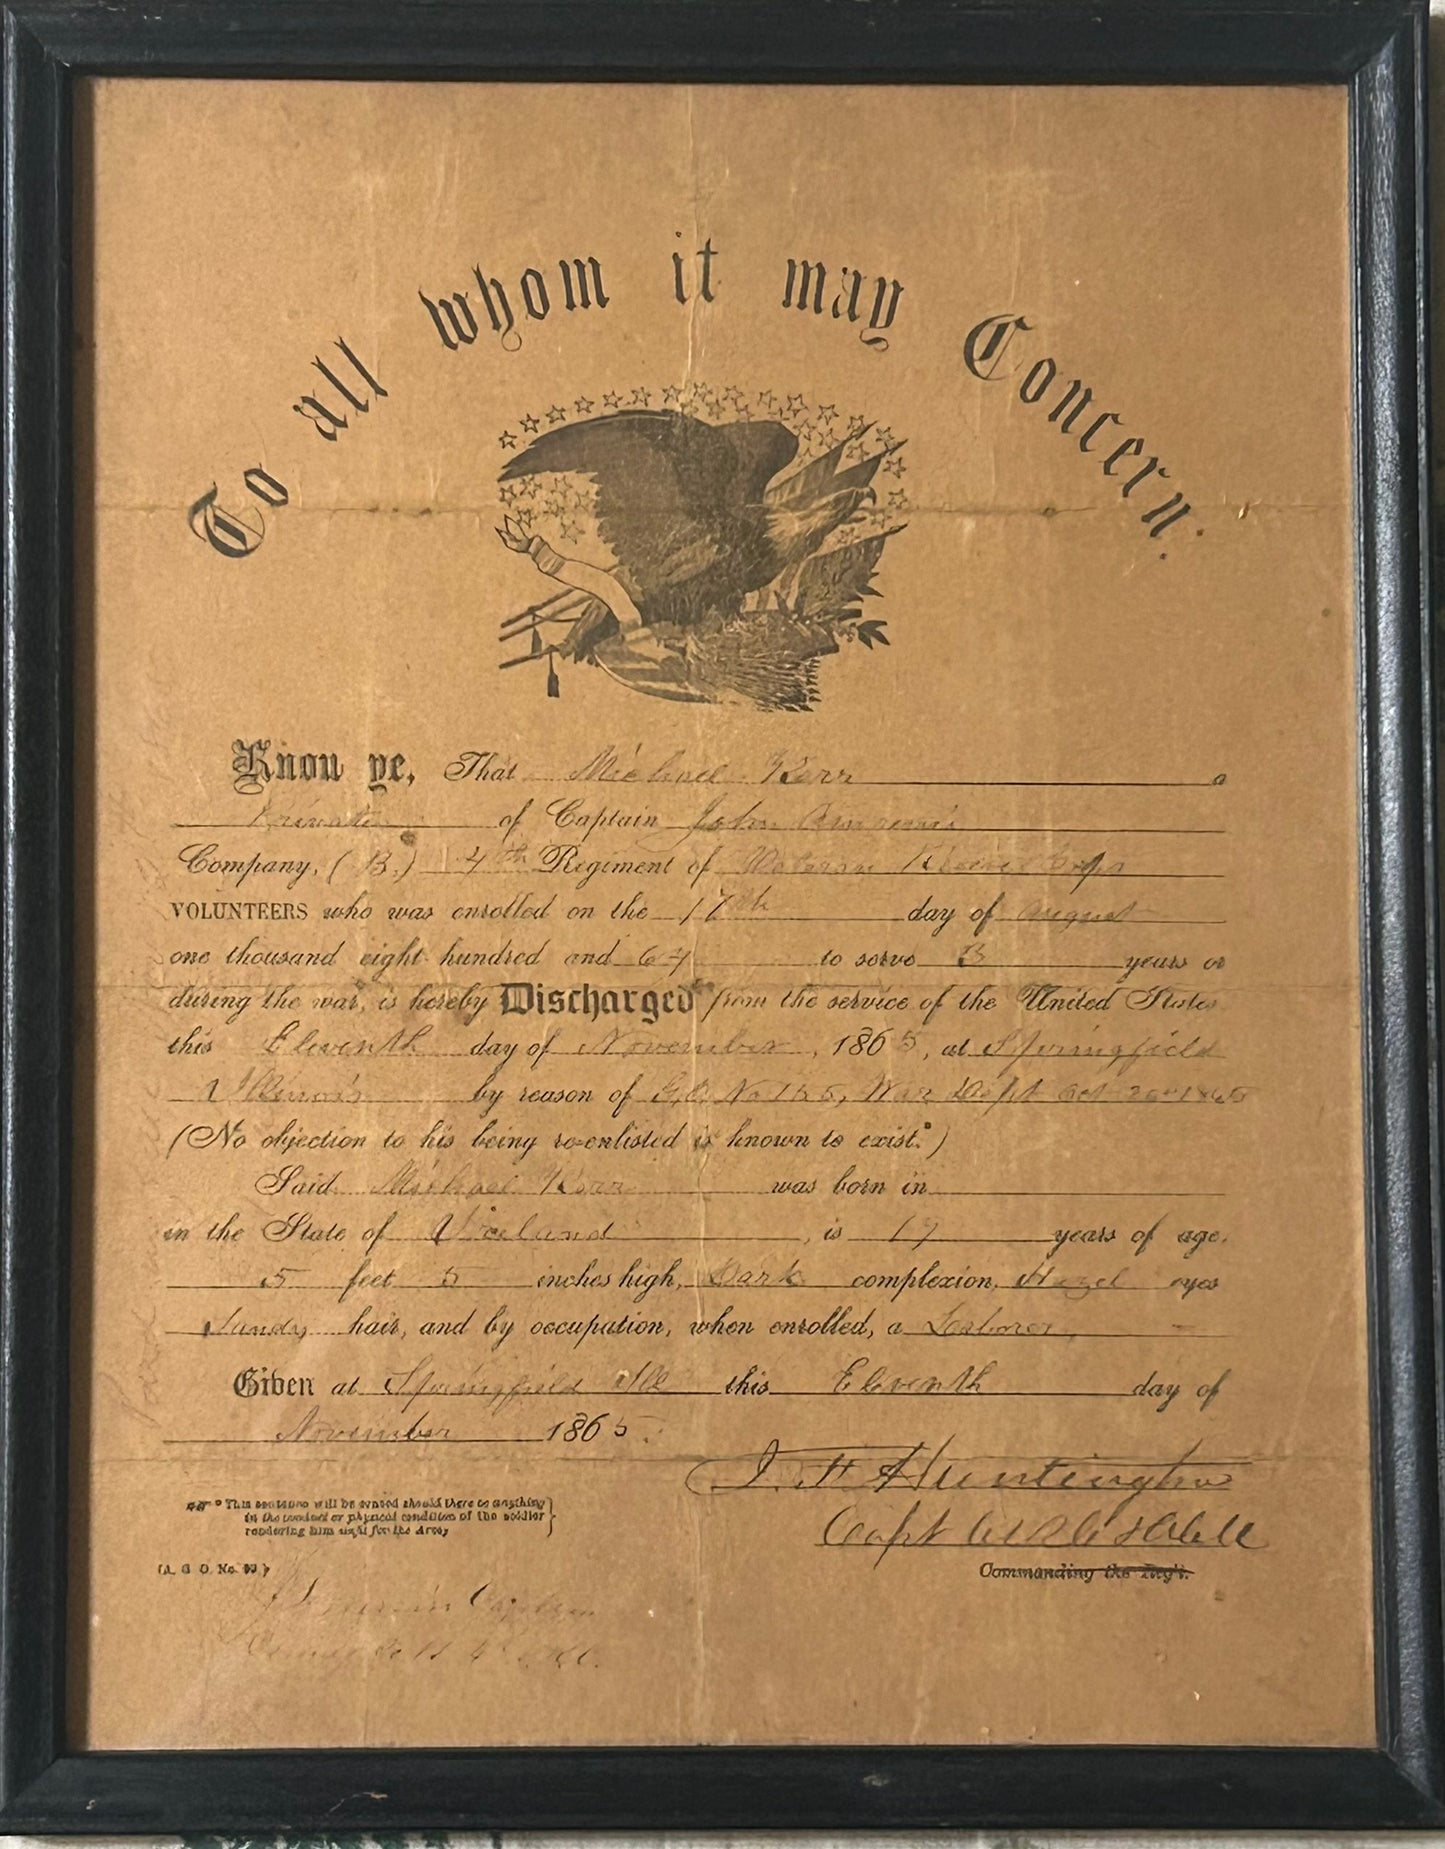 To all whom it may Concern:
Know ye, That Michael Kerr a
Private of Captain John
Company, (B,) 4th Regiment of Veteran Reserve Corps
VOLUNTEERS who was enrolled on the 17th day of August
one thousand eight hundred and 64 to serve 3 years or
during the war, is hereby Discharged from the service of the United States
this Eleventh day of November, 1865, at Springfield
Illinois by reason of G.O. No 155, War Dept Oct 26th 1865
(No objection to his being re-enlisted is known to exist.*)
Said Michael Kerr was born in
in the State of Ireland, is 19 years of age,
5 feet 5 inches high, Dark complexion, Hazel eyes
Sandy hair, and by occupation, when enrolled, a Laborer,
Given at Springfield Ills this Eleventh day of
November 1865.
Huntington
Capt
Commanding the Reg't.
*This sentence will be erased should there be anything
in the conduct or physical condition of the soldier
rendering him unfit for the Army
(A. G. O. No. 99)
Captain